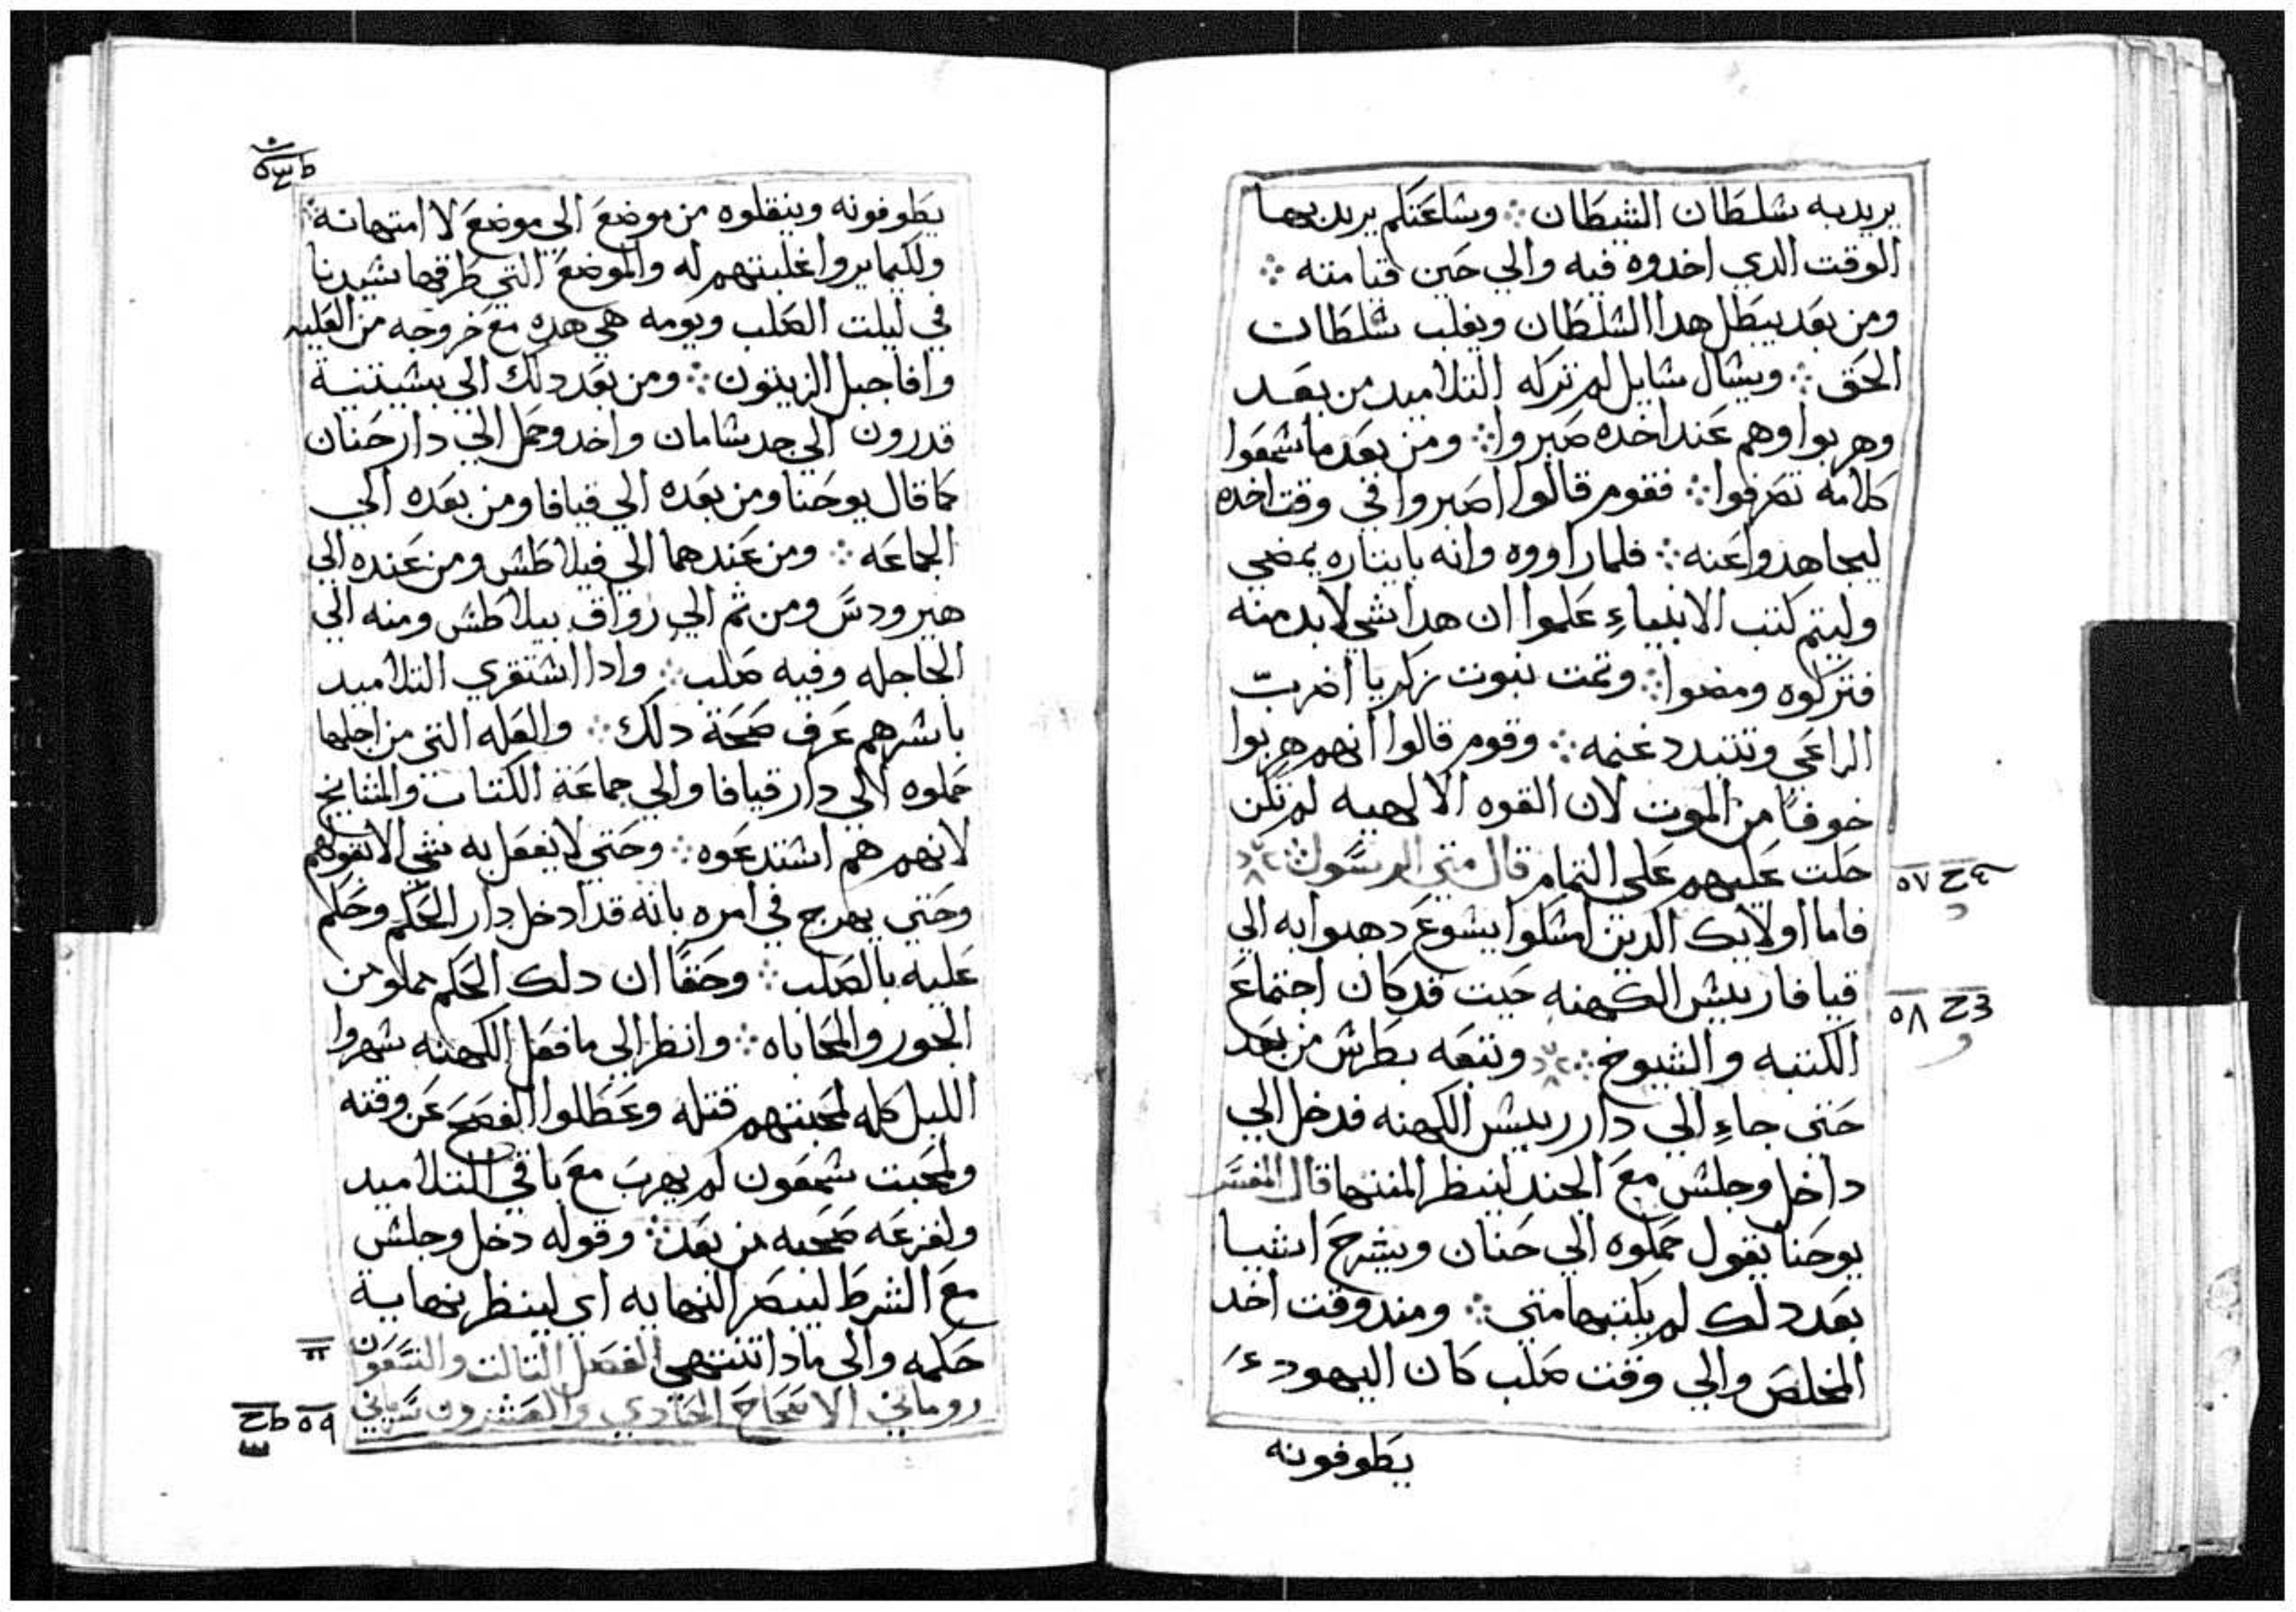 يريد به شلطان الشيطان ۞ وشاعتكم يريد بها
الوقت الدي اخدوه فيه والي حين قيامته ۞
ومن بعد يبطل هدا الشلطان ويغلب شلطان
الحق ۞ ويشال شايل لم تركه التلاميد من بعد
وهربوا وهم عند اخده صبروا ۞ ومن بعد ما شمعوا
كلامه تصرفوا ۞ فقوم قالوا اصبروا في وقت اخده
ليجاهدوا عنه ۞ فلما راووه وانه بايتاره يمضي
وليتم كتب الانبياء علموا ان هدا شي لابد منه
فتركوه ومضوا ۞ وتمت نبوت زكريا اضرب
الراعي وتتبدد غنمه ۞ وقوم قالوا انهم هربوا
خوفًا من الموت لان القوه الالهيه لم تكن
حلت عليهم علي التمام قال متي الرسول ۞
فاما اولايك الدين امشكوا يشوع دهبوا به الي
قيافا رييش الكهنه حيت قد كان اجتماع
الكتبه والشيوخ ۞ وتبعه بطرش من بعد
حتي جاء الي دار رييش الكهنه فدخل الي
داخل وجلش مع الجند لينظر المنتها قال المفسر
يوحنا يقول حملوه الي حنان ويشرح اشيا
بعد دلك لم يكتبها متي ۞ ومند وقت اخد
المخلص والي وقت صلب كان اليهود
يطوفونه
٥٧
٥٨
يطوفونه وينقلوه من موضع الي موضع لا امتهانه
ولكيما يروا غلبتهم له والموضع التي طرقها شيدنا
في ليلت الصلب ويومه هي هده مع خروجه من العليه
وافا جبل الزيتون ۞ ومن بعد دلك الي بشيتنية
قدرون الي جدشامان واخد وحمل الي دار حنان
كما قال يوحنا ومن بعده الي قيافا ومن بعده الي
الجماعه ۞ ومن عندهما الي فيلاطش ومن عنده الي
هيرودس ومن تم الي رواق بيلاطش ومنه الي
الجاجله وفيه صلب ۞ وادا اشتقري التلاميد
باشرهم عرف صحة دلك ۞ والعله التي من اجلها
حملوه الي دار قيافا والي جماعة الكتاب والمشايخ
لانهم هم اشتدعوه ۞ وحتي لا يفعل به شي الا بقولهم
وحتي يهرج في امره بانه قد ادخل دار الحكم وحكم
عليه بالصلب ۞ وحقًا ان دلك الحكم مملو من
الجور والمحاباه ۞ وانظر الي ما فعل الكهنه شهروا
الليل كله لمحبتهم قتله وعطلوا الفصح عن وقته
ولمحبت شمعون لم يهرب مع باقي التلاميد
ولفزعه صحبه من بعد ۞ وقوله دخل وجلش
مع الشرط ليبصر النهايه اي لينظر نهاية
حكمه والي مادا تنتهي الفصل التالت والتسعون
روماني الاصحاح الحادي والعشرون سرياني
٥٩